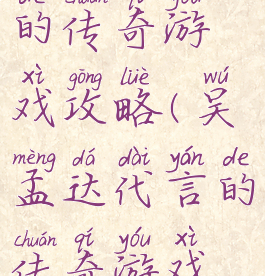 de chuán qí yóu
的传奇游
xì gōng lüè wú
戏攻略(吴
mèng dá dài yán de
孟达代言的
chuán qí yóu xì
传奇游戏